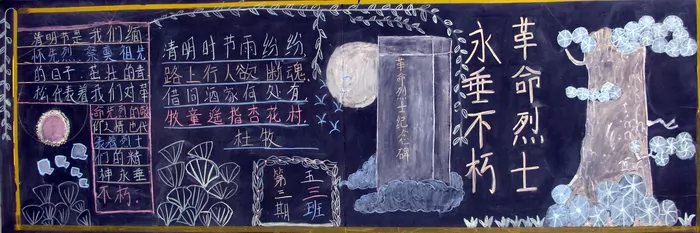 清明节是我们缅
怀先烈 祭奠祖先
的日子.茁壮的青
松代表着我们对革
命先烈的敬
仰之情也代
表着烈士
们的精
神永垂
不朽.
清明时节雨纷纷.
路上行人欲断魂.
借问酒家何处有
牧童遥指杏花村.
杜牧
五三班
第二期
革命烈士纪念碑
革命烈士
永垂不朽